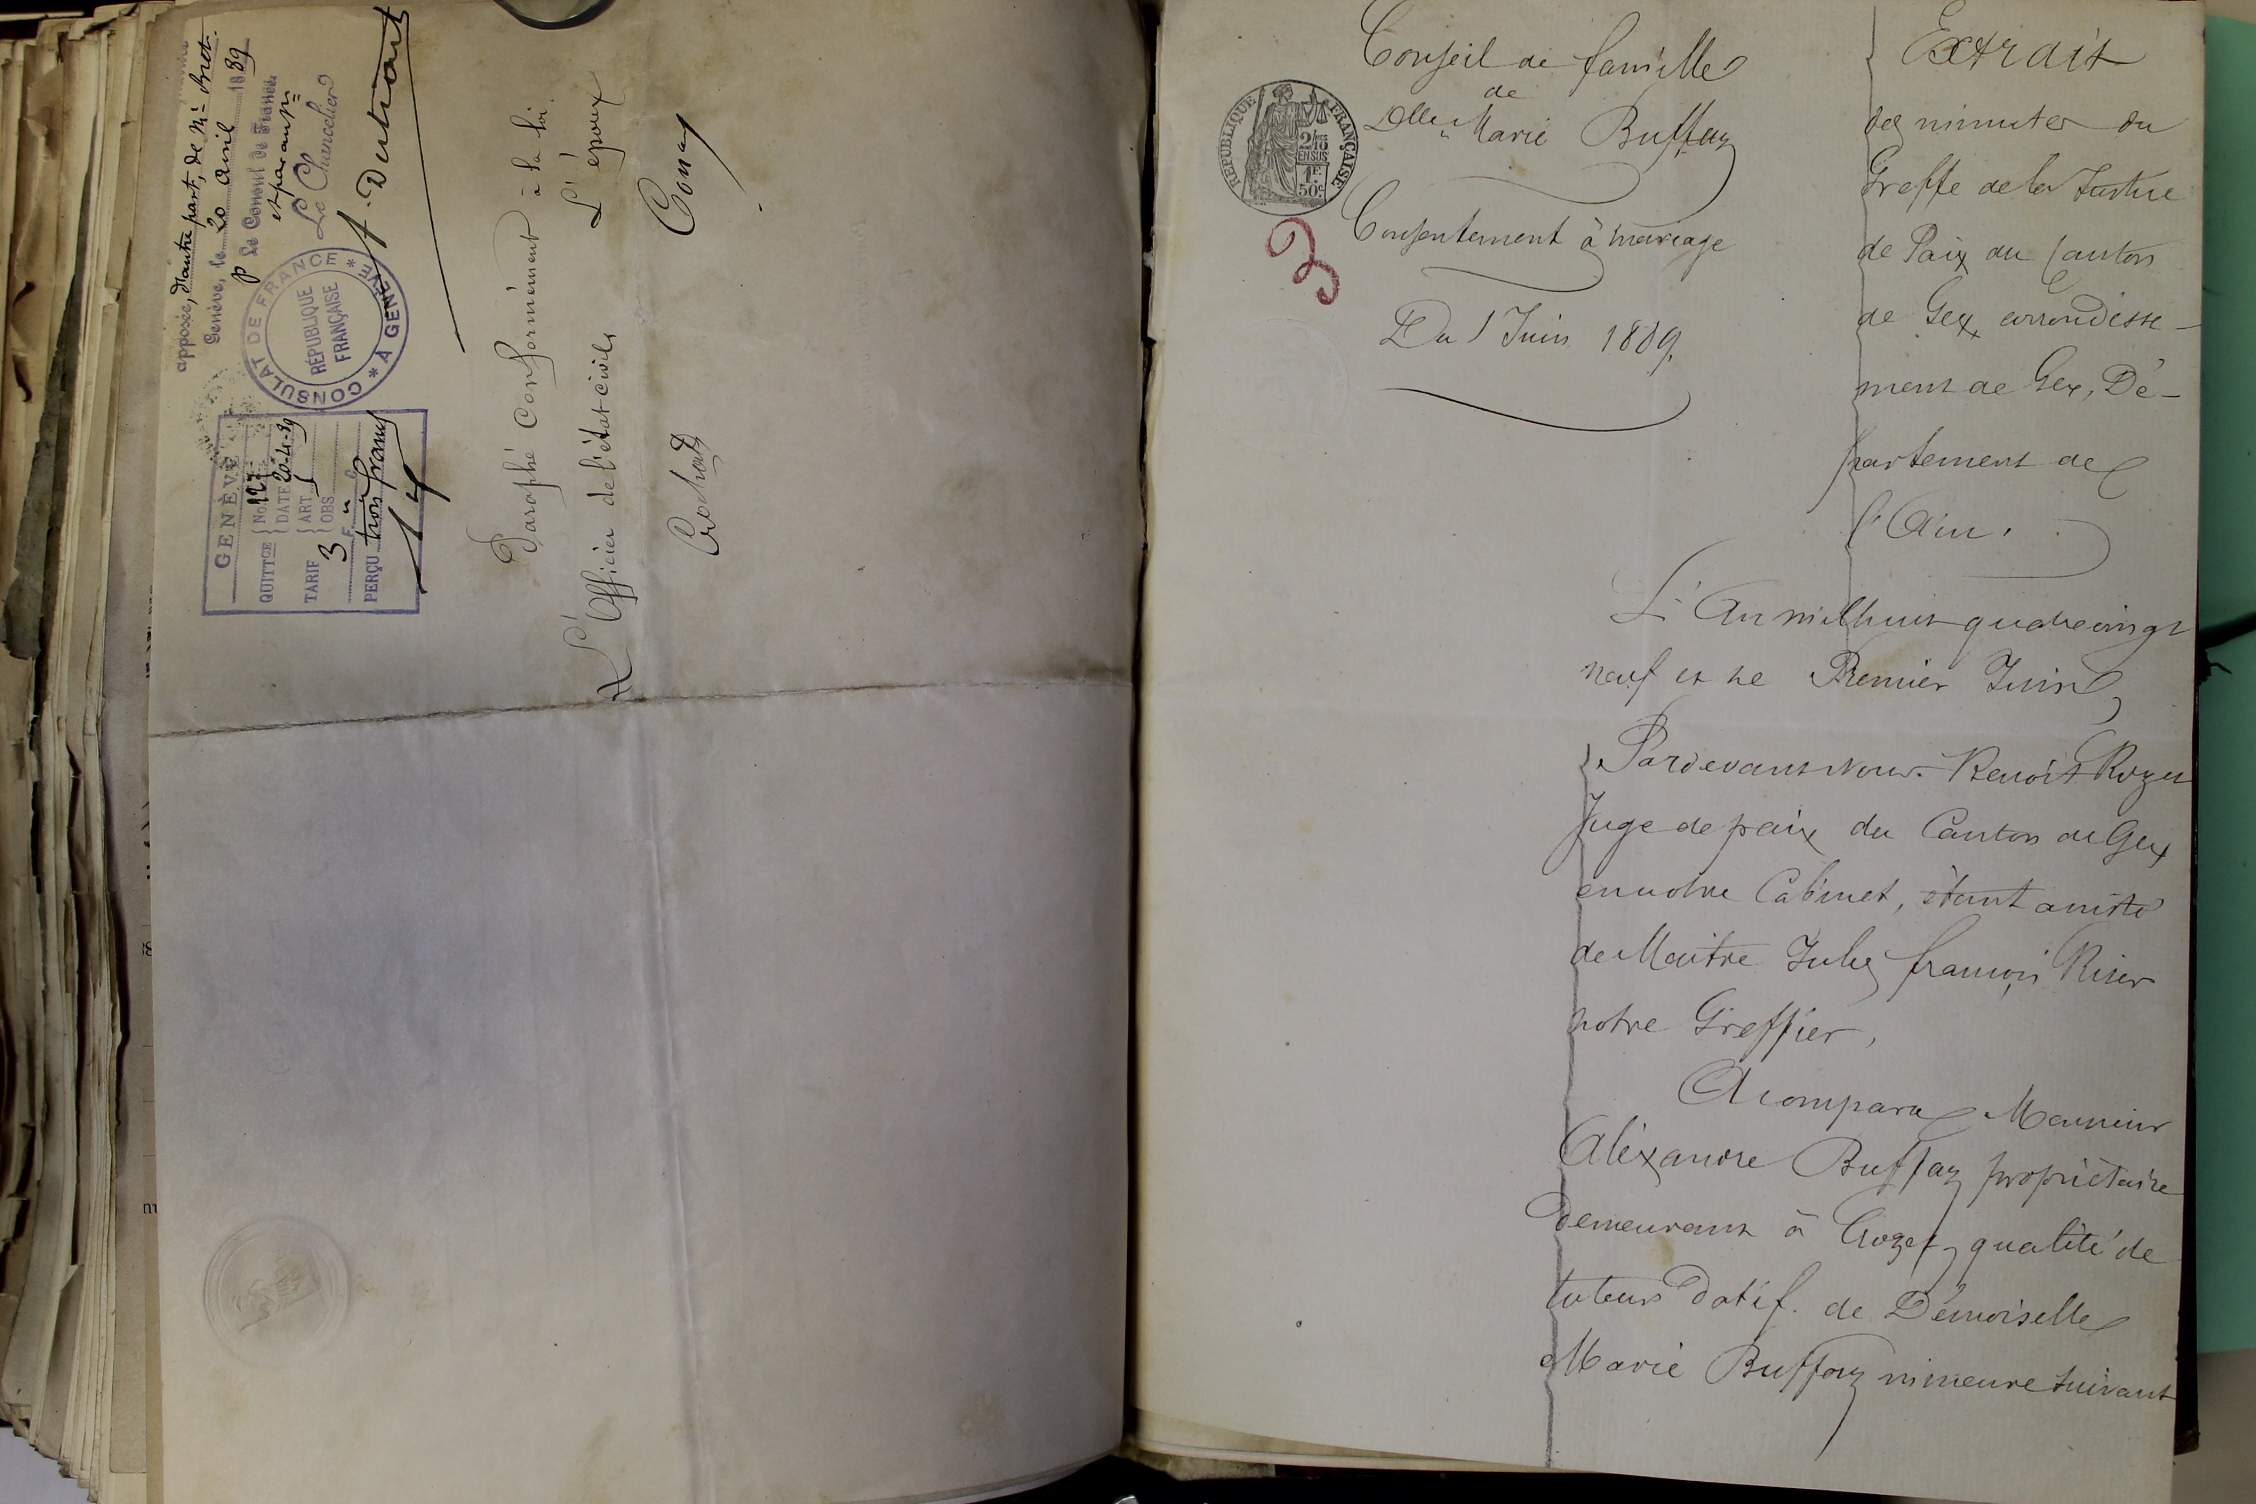 apposée, d'autre part, de Mr Bret.
Genève, le 20 avril 1889
P Le Consul de France
et par
Le Chancelier
CONSULAT DE FRANCE * À GENÈVE *
RÉPUBLIQUE
FRANÇAISE
GENÈVE
QUITTCE No 127
DATE 20-4-89
ART
TARIF OBS
3 F. " c
PERÇU trois francs
Paraphé conformément à la loi.
L'Officier de l'état civil L'époux
Crochat
Conseil de famille
de
Delle Marie Buffaz
RÉPUBLIQUE FRANÇAISE
2/10es
EN SUS
1F.
50c
Consentement à mariage
Du 1 Juin 1889.
3
Extrait
des minutes du
Greffe de la Justice
de Paix du Canton
de Gex, arrondisse-
ment de Gex, Dé-
partement de
l'Ain.
L'An mil huit quatre vingt
neuf et le Premier Juin,
Pardevant nous. Benoit Rozet
Juge de paix du Canton de Gex
en notre Cabinet, étant assisté
de Maitre Jules françois
notre Greffier,
A comparu Monsieur
Aléxandre Buffaz propriétaire
demeurant à Crozet, qualité de
tuteur Datif. de Démoiselle
Marie Buffaz mineure suivant